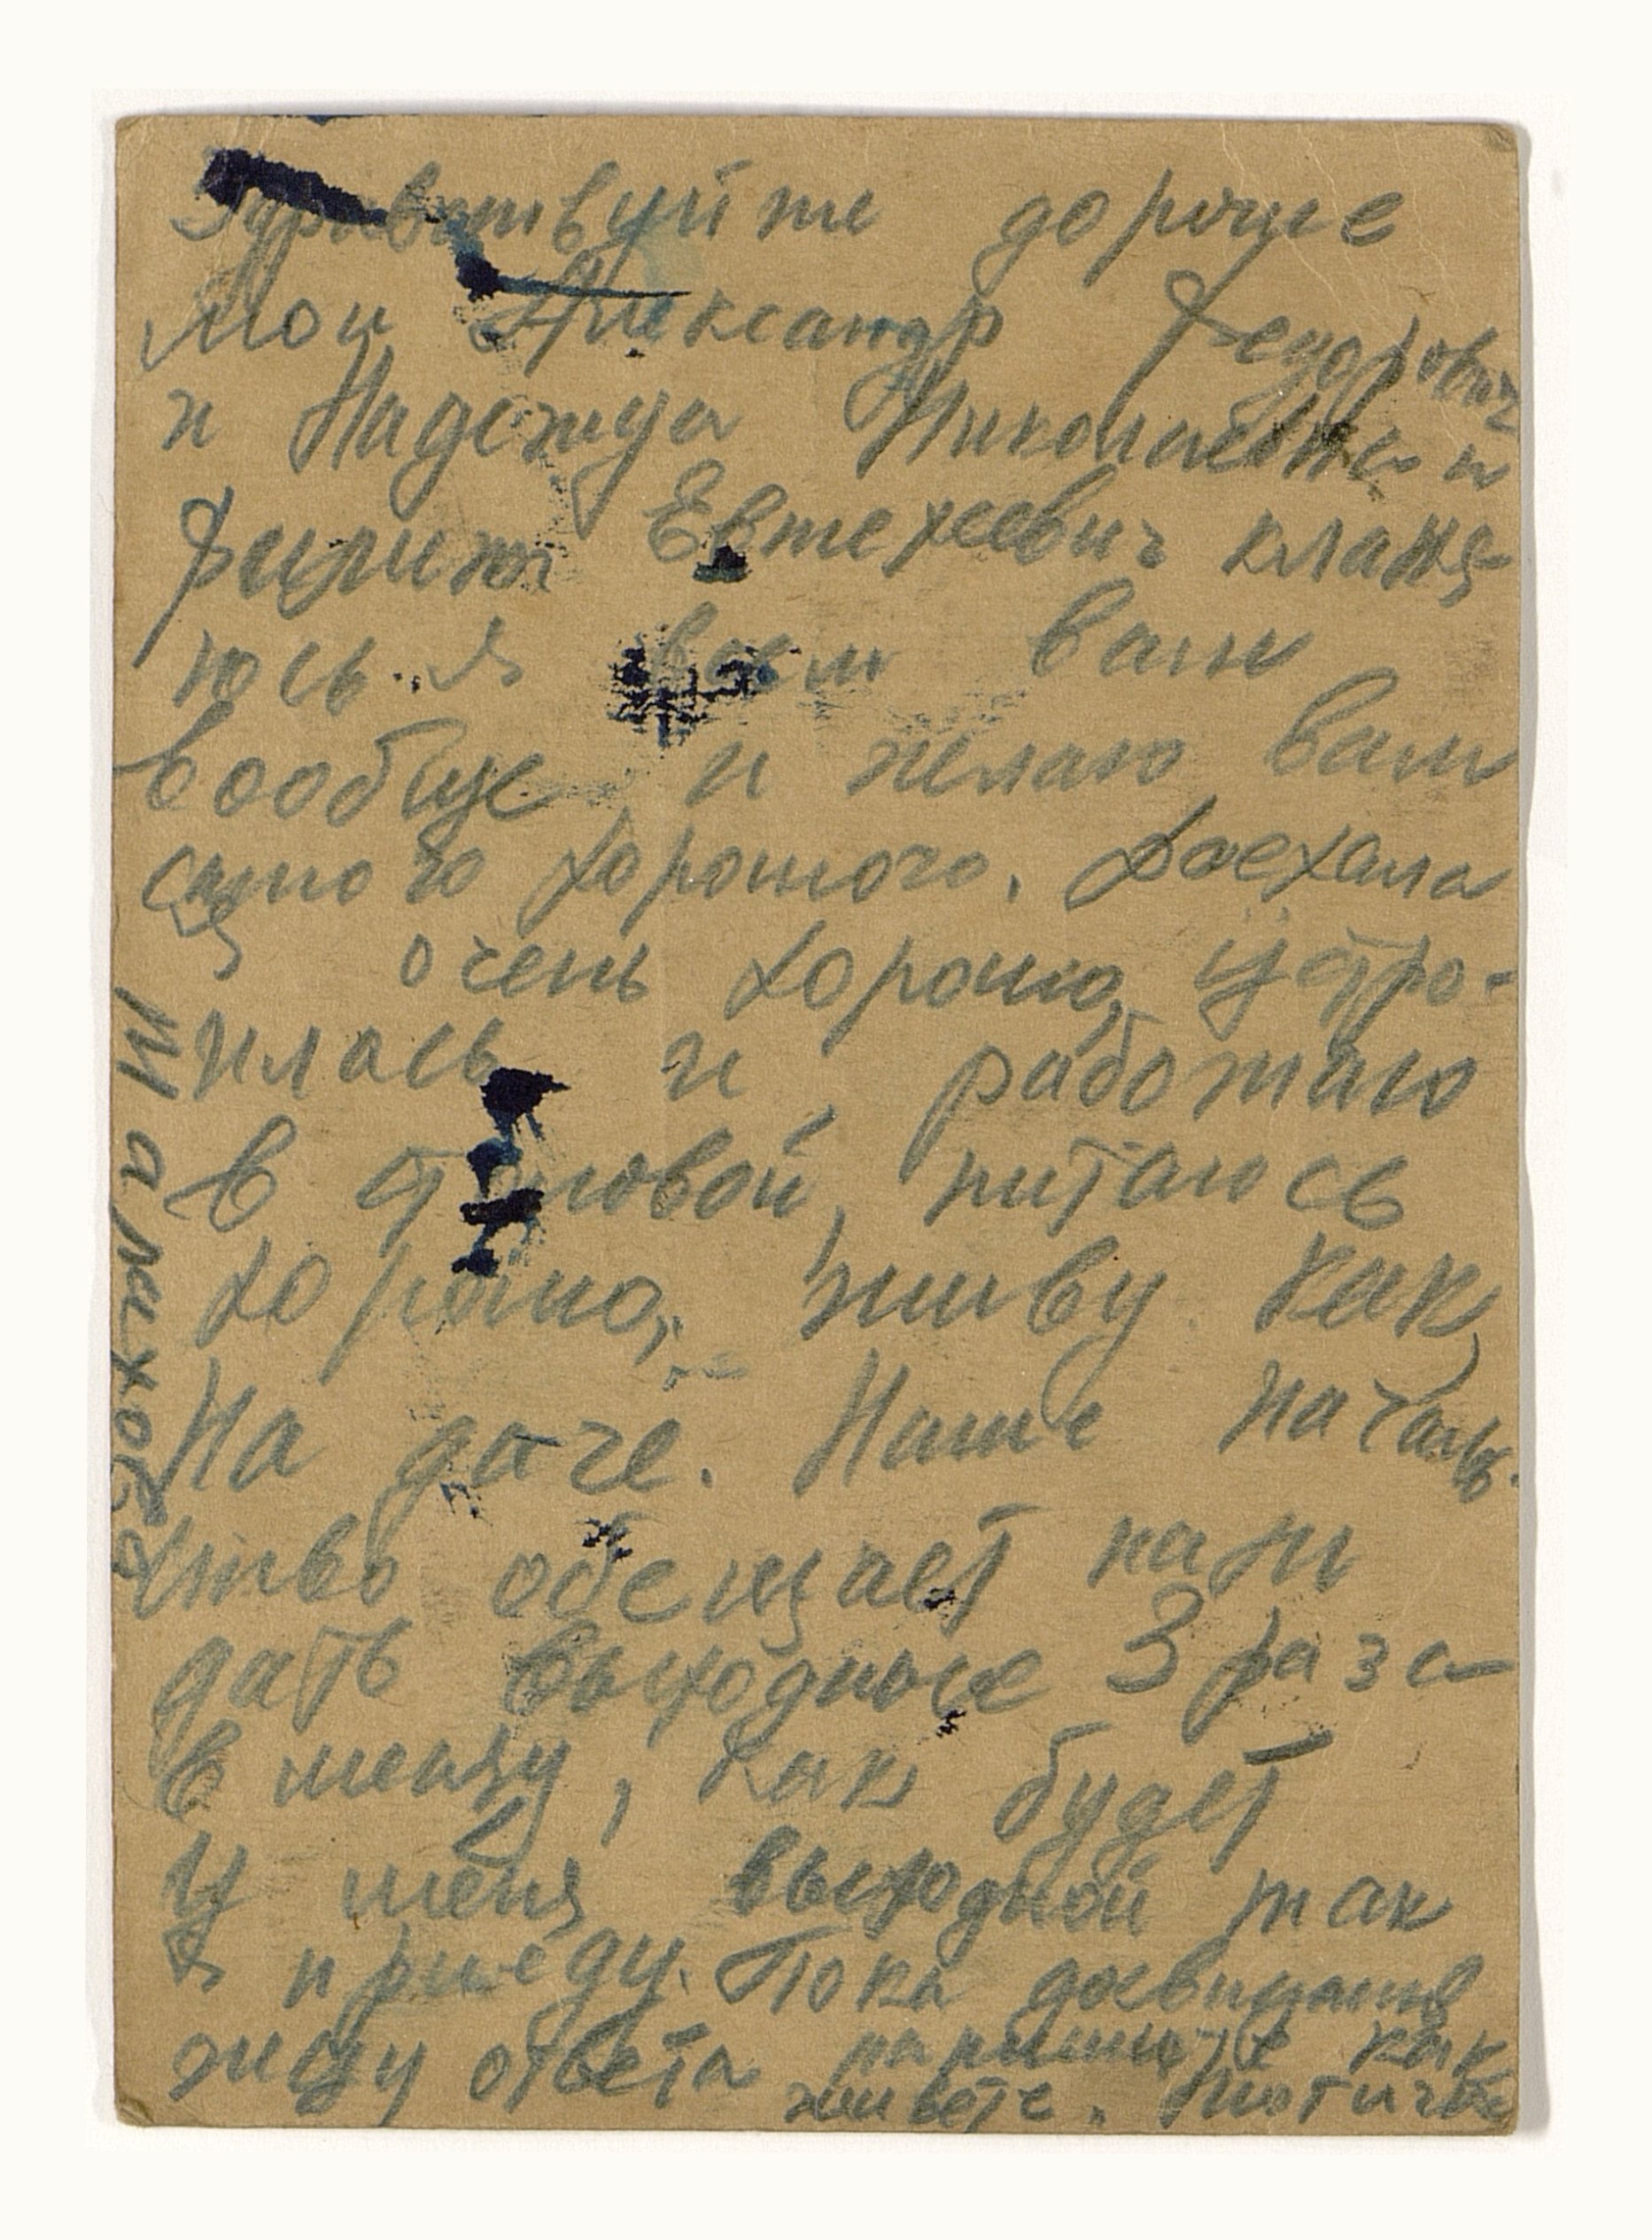 Здравствуйте дорогие
мои Александр Федорович
и Надежда Николаевна и
Филипп Евтехеевич кланя-
юсь я всем вам
вообще, и желаю вам
самого хорошого. Доехала
я очень хорошо, устро-
илась и работаю
в столовой, питаюсь
хорошо, живу как
на даче. Наше началь-
ство обещает нам
дать выходные 3 раза
в месяц, как будет
у меня выходной так
я приеду. Пока досвидание
жду ответа напишите как
живете.
Малахова